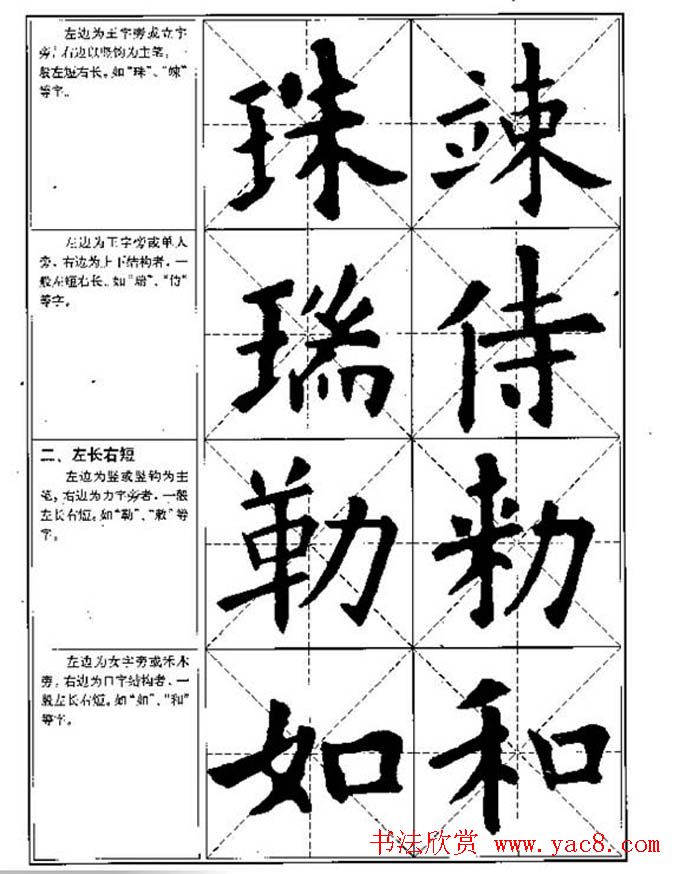 左边为王字旁或立字
旁,右边以竖钩为主笔,一
般左短右长。如“珠”、“竦”
等字。
珠 竦
左边为王字旁或单人
旁,右边为上下结构者,一
般左短右长。如“瑞”、“侍”
等字。
瑞 侍
二、左长右短
左边为竖或竖钩为主
笔,右边为力字旁者,一般
左长右短。如“勒”、“敕”等
字。
勒 勑
左边为女字旁或禾木
旁,右边为口字结构者,一
般左长右短。如“如”、“和”
等字。
如 和
书法欣赏 www.yac8.com